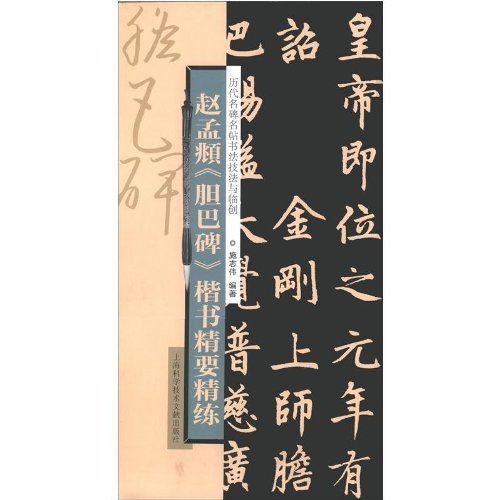 皇帝即位之元年有
詔金剛上師膽
巴賜謚大覺普慈廣
历代名碑名帖书法技法与临创
◎施志伟 编著
赵孟頫《胆巴碑》楷书精要精练
膽巴碑
上海科学技术文献出版社